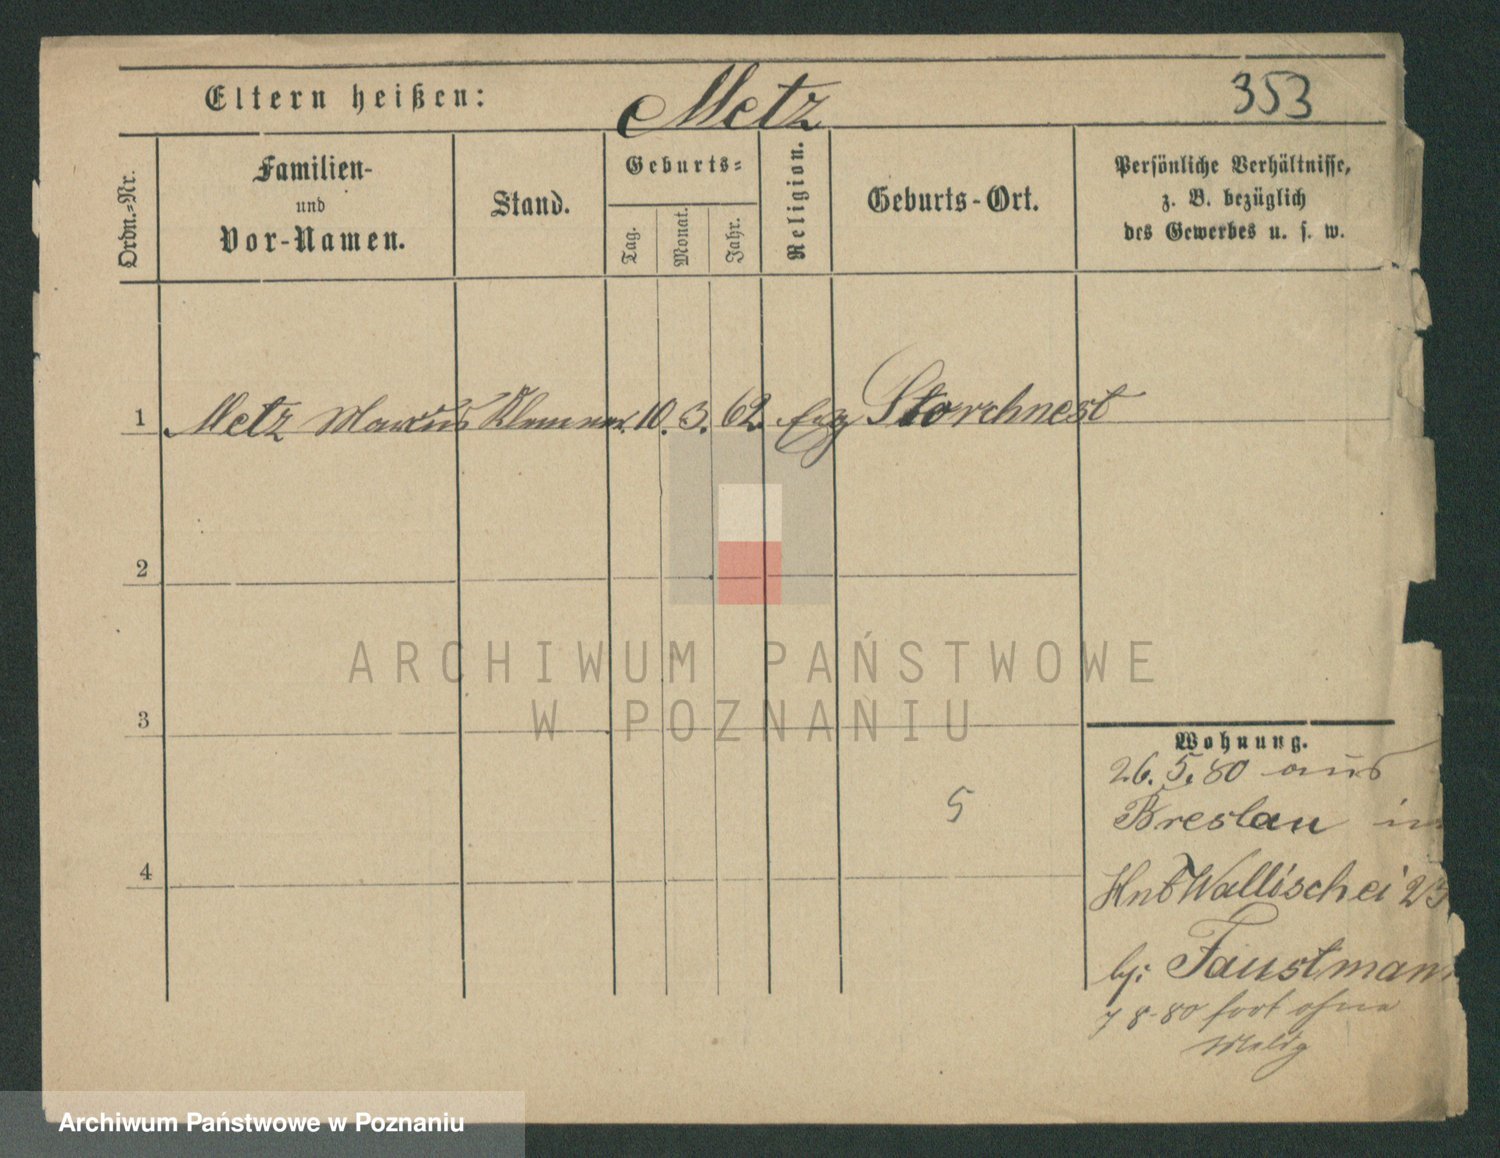 Eltern heißen: Metz 353
Ordn.-Nr.
Familien-
und
Vor-Namen.
Stand.
Geburts-
Tag.
Monat.
Jahr.
Religion.
Geburts-Ort.
Persönliche Verhältnisse,
z. B. bezüglich
des Gewerbes u. s. w.
1 Metz Markus 10. 3. 62. Storchnest
2
ARCHIWUM PAŃSTWOWE
W POZNANIU
3
Wohnung.
26. 5. 80 aus
Breslau in
5
4
Wallischei
by: Faustmann
7 8-80 fort ohne
Meldg
Archiwum Państwowe w Poznaniu